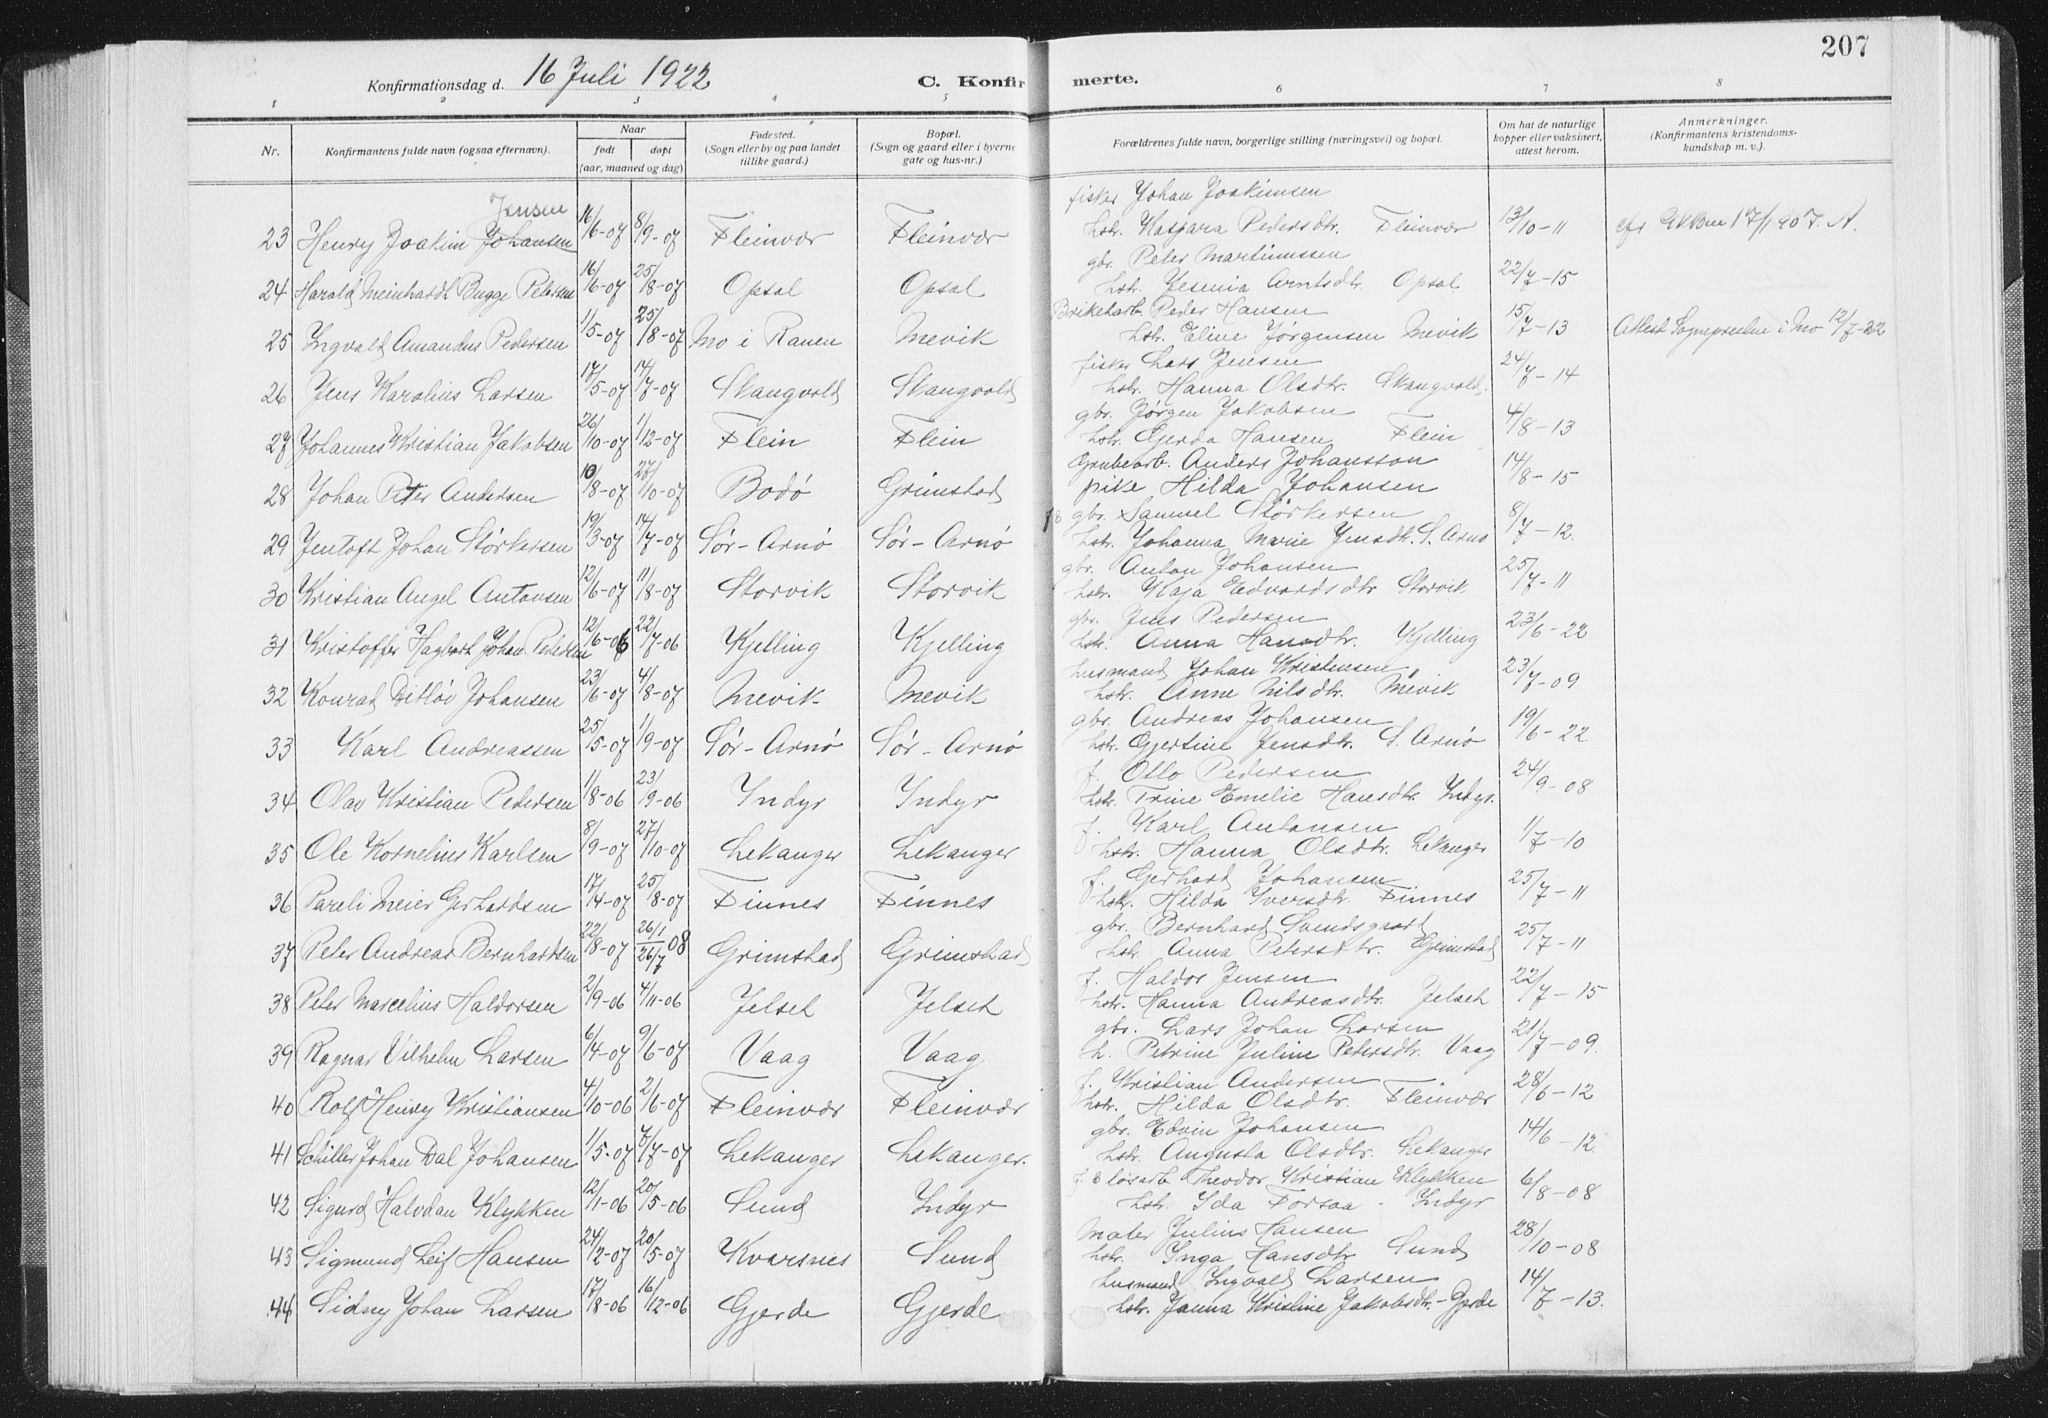 207
Konfirmationsdag d. 16 Juli 1922 C. Konfirmerte.
1 2 3 4 5 6 7 8
Nr. Konfirmantens fulde navn (ogsaa efternavn). Naar født døpt (aar, maaned og dag) Fødested. (Sogn eller by og paa landet tillike gaard.) Bopæl. (Sogn og gaard eller i byerne gate og hus-nr.) Forældrenes fulde navn, borgerlige stilling (næringsvei) og bopæl. Om hat de naturlige kopper eller vaksinert, attest herom. Anmerkninger. (Konfirmantens kristendomskundskap m. v.).
Jensen fisker Johan Joakimsen
23 Henry Joakim Johansen 16/6-07 8/9-07 Fleinvær Fleinvær hstr. Kaspara Pedersdtr. Fleinvær 13/10-11
gbr. Peter Martinussen
24 Harald Meinhardt Bugge Petersen 16/6-07 25/8-07 Opsal Opsal hstr. Jesenia Arntsdtr. Opsal 22/7-15
Briketarb. Peder Hansen
25 Ingvald Amandus Pedersen 1/5-07 25/8-07 Mo i Ranen Mevik hstr. Eline Jørgensen Mevik 15/7-13 Attest Sognepresten i Mo 12/7-22
fisker Lars Jensen
26 Jens Karolius Larsen 17/5-07 14/7-07 Skangvold Skangvold hstr. Hanna Olsdtr. Skangvold. 24/7-14
gbr. Jørgen Jakobsen
27 Johannes Kristian Jakobsen 26/10-07 1/12-07 Flein Flein hstr. Gjerda Hansen Flein 4/8-13
Grubearb. Anders Johansson
28 Johan Peter Andersen 10/8-07 27/10-07 Bodø Grimstad pike Hilda Johansen 14/8-15
gbr. Samuel Størkersen
29 Jentoft Johan Størkersen 19/3-07 14/7-07 Sør-Arnø Sør-Arnø hstr. Johanna Marie Jensdtr. S. Arnø 8/7-12.
gbr. Anton Johansen
30 Kristian Angel Antonsen 12/6-07 11/8-07 Storvik Storvik hstr. Kaja Edvardsdtr Storvik 25/7-11
gbr. Jens Pedersen
31 Kristoffer Hagbart Johan Pedersen 12/6-06 22/7-06 Kjelling Kjelling hstr. Anna Hansdtr. Kjelling 23/6-22
husmand Johan Kristensen
32 Konrad Ditløi Johansen 23/6-07 4/8-07 Mevik Mevik hstr. Anne Nilsdtr. Mevik 23/7-09
gbr. Andreas Johansen
33 Karl Andreassen 25/5-07 1/9-07 Sør-Arnø Sør-Arnø hstr. Gjertine Jensdtr. S. Arnø 19/6-22
f. Otto Pedersen
34 Olav Kristian Pedersen 1/8-06 23/9-06 Indyr Indyr hstr. Trine Emelie Hansdtr. Indyr. 24/9-08
f. Karl Antonsen
35 Ole Kornelius Karlsen 8/9-07 27/10-07 Lekanger Lekanger hstr. Hanna Olsdtr. Lekanger 1/7-10
f. Gerhard Johansen
36 Pareli Meier Gerhardsen 17/4-07 25/8-07 Finnes Finnes hstr. Hilda Iversdtr. Finnes 25/7-11
gbr. Bernhard Svendsgaard
37 Peter Andreas Bernhardsen 22/8-07 26/1 26/7 08 Grimstad Grimstad hstr. Anna Petersdtr. Grimstad 25/7-11
f. Haldor Jensen
38 Peter Marcelius Haldorsen 2/9-06 4/11-06 Jelset Jelset hstr. Hanna Andreasdtr. Jelset 22/7-15
gbr. Lars Johan Larsen
39 Ragnar Vilhelm Larsen 6/4-07 9/6-07 Vaag Vaag h. Petrine Juline Petersdtr. Vaag 21/7-09.
f. Kristian Andersen
40 Rolf Henry Kristiansen 4/10-06 2/6-07 Fleinvær Fleinvær hstr. Hilda Olsdtr. Fleinvær 28/6-12
gbr. Edvin Johansen
41 Schiller Johan Dal Johansen 1/5-07 7/7-07 Lekanger Lekanger. hstr. Augusta Olsdtr. Lekanger 14/6-12
løsarb Theodor Kristian Klykken
42 Sigurd Halvdan Klykken 12/1-06 20/5-06 Sund Indyr hstr. Ida Forsaa - Indyr 6/8-08
Maler Julius Hansen
43 Sigmund Leif Hansen 24/2-07 20/5-07 Kvarsnes Sund hstr. Inga Hansdtr Sund 28/10-08
husmand Ingvald Larsen
44 Sidney Johan Larsen 17/8-06 16/12-06 Gjerde Gjerde hstr. Janna Kristine Jakobsdtr.-Gjerde 14/7-13.